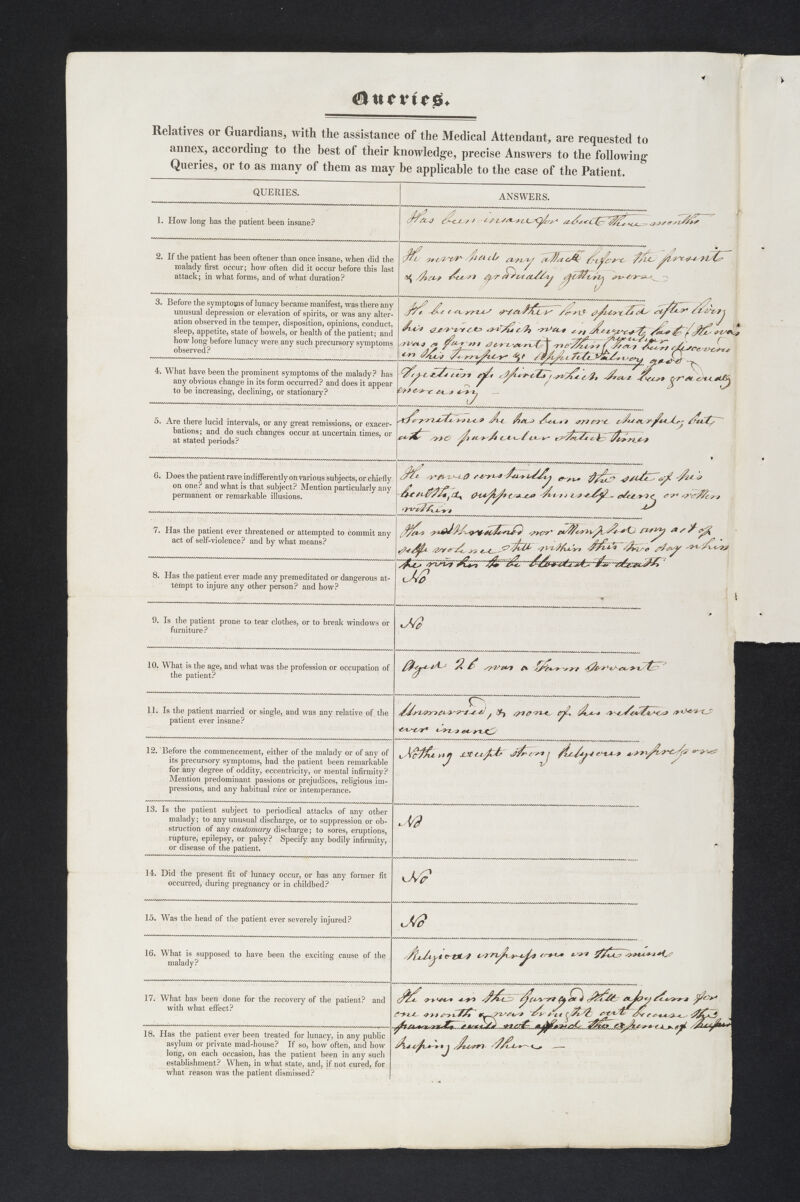 Queries.
Relatives or Guardians, with the assistance of the Medical Attendant, are requested to
annex, according to the best of their knowledge, precise Answers to the following
Queries, or to as many of them as may be applicable to the case of the Patient.
QUERIES.
ANSWERS.
1. How long has the patient been insane?
Has been insane for about three months
2. If the patient has been oftener than once insane, when did the
malady first occur; how often did it occur before this last
attack; in what forms, and of what duration?
He never had any attack before the present
& has been gradually getting worse
3. Before the symptoms of lunacy became manifest, was there any
unusual depression or elevation of spirits, or was any alter-
ation observed in the temper, disposition, opinions, conduct,
sleep, appetite, state of bowels, or health of the patient; and
how long before lunacy were any such precursory symptoms
observed?
He became rather low spirited after
his service which was in harvest last, He was
was a farm servant, nothing peculiar has been discovered
in his temper & appetite alway good
4. What have been the prominent symptoms of the malady? has
any obvious change in its form occurred? and does it appear
to be increasing, declining, or stationary?
Dejection of spirits, which has been gradually
increasing —
5. Are there lucid intervals, or any great remissions, or exacer-
bations; and do such changes occur at uncertain times, or
at stated periods?
Sometimes he has been more chearful, but
at no particular stated times
6. Does the patient rave indifferently on various subjects, or chiefly
on one? and what is that subject? Mention particularly any
permanent or remarkable illusions.
He raves constantly on the state of his
health, & supposes himself dieing or rotten
within
7. Has the patient ever threatened or attempted to commit any
act of self-violence? and by what means?
Has nor attempted any act of
self violence till within this two day when
he wishes to be blooded to death
8. Has the patient ever made any premeditated or dangerous at-
tempt to injure any other person? and how?
No
9. Is the patient prone to tear clothes, or to break windows or
furniture?
No
10. What is the age, and what was the profession or occupation of
the patient?
Aged 26 was a Farm Servant
11. Is the patient married or single, and was any relative of the
patient ever insane?
Unmarried, & none of his relatives were
ever insane
12. Before the commencement, either of the malady or of any of
its precursory symptoms, had the patient been remarkable
for any degree of oddity, eccentricity, or mental infirmity?
Mention predominant passions or prejudices, religious im-
pressions, and any habitual vice or intemperance.
Nothing except strong Religious impressions
13. Is the patient subject to periodical attacks of any other
malady; to any unusual discharge, or to suppression or ob-
struction of any customary discharge; to sores, eruptions,
rupture, epilepsy, or palsy? Specify any bodily infirmity,
or disease of the patient.
No
14. Did the present fit of lunacy occur, or has any former fit
occurred, during pregnancy or in childbed?
No
15. Was the head of the patient ever severely injured?
No
16. What is supposed to have been the exciting cause of the
malady?
Religious impressions on the mind
17. What has been done for the recovery of the patient? and
with what effect?
He was in the Garngad Hill asylum for
one month & was brought out because the
parents could not afford the expence of
keeping him there —
18. Has the patient ever been treated for lunacy, in any public
asylum or private mad-house? If so, how often, and how
long, on each occasion, has the patient been in any such
establishment? When, in what state, and, if not cured, for
what reason was the patient dismissed?